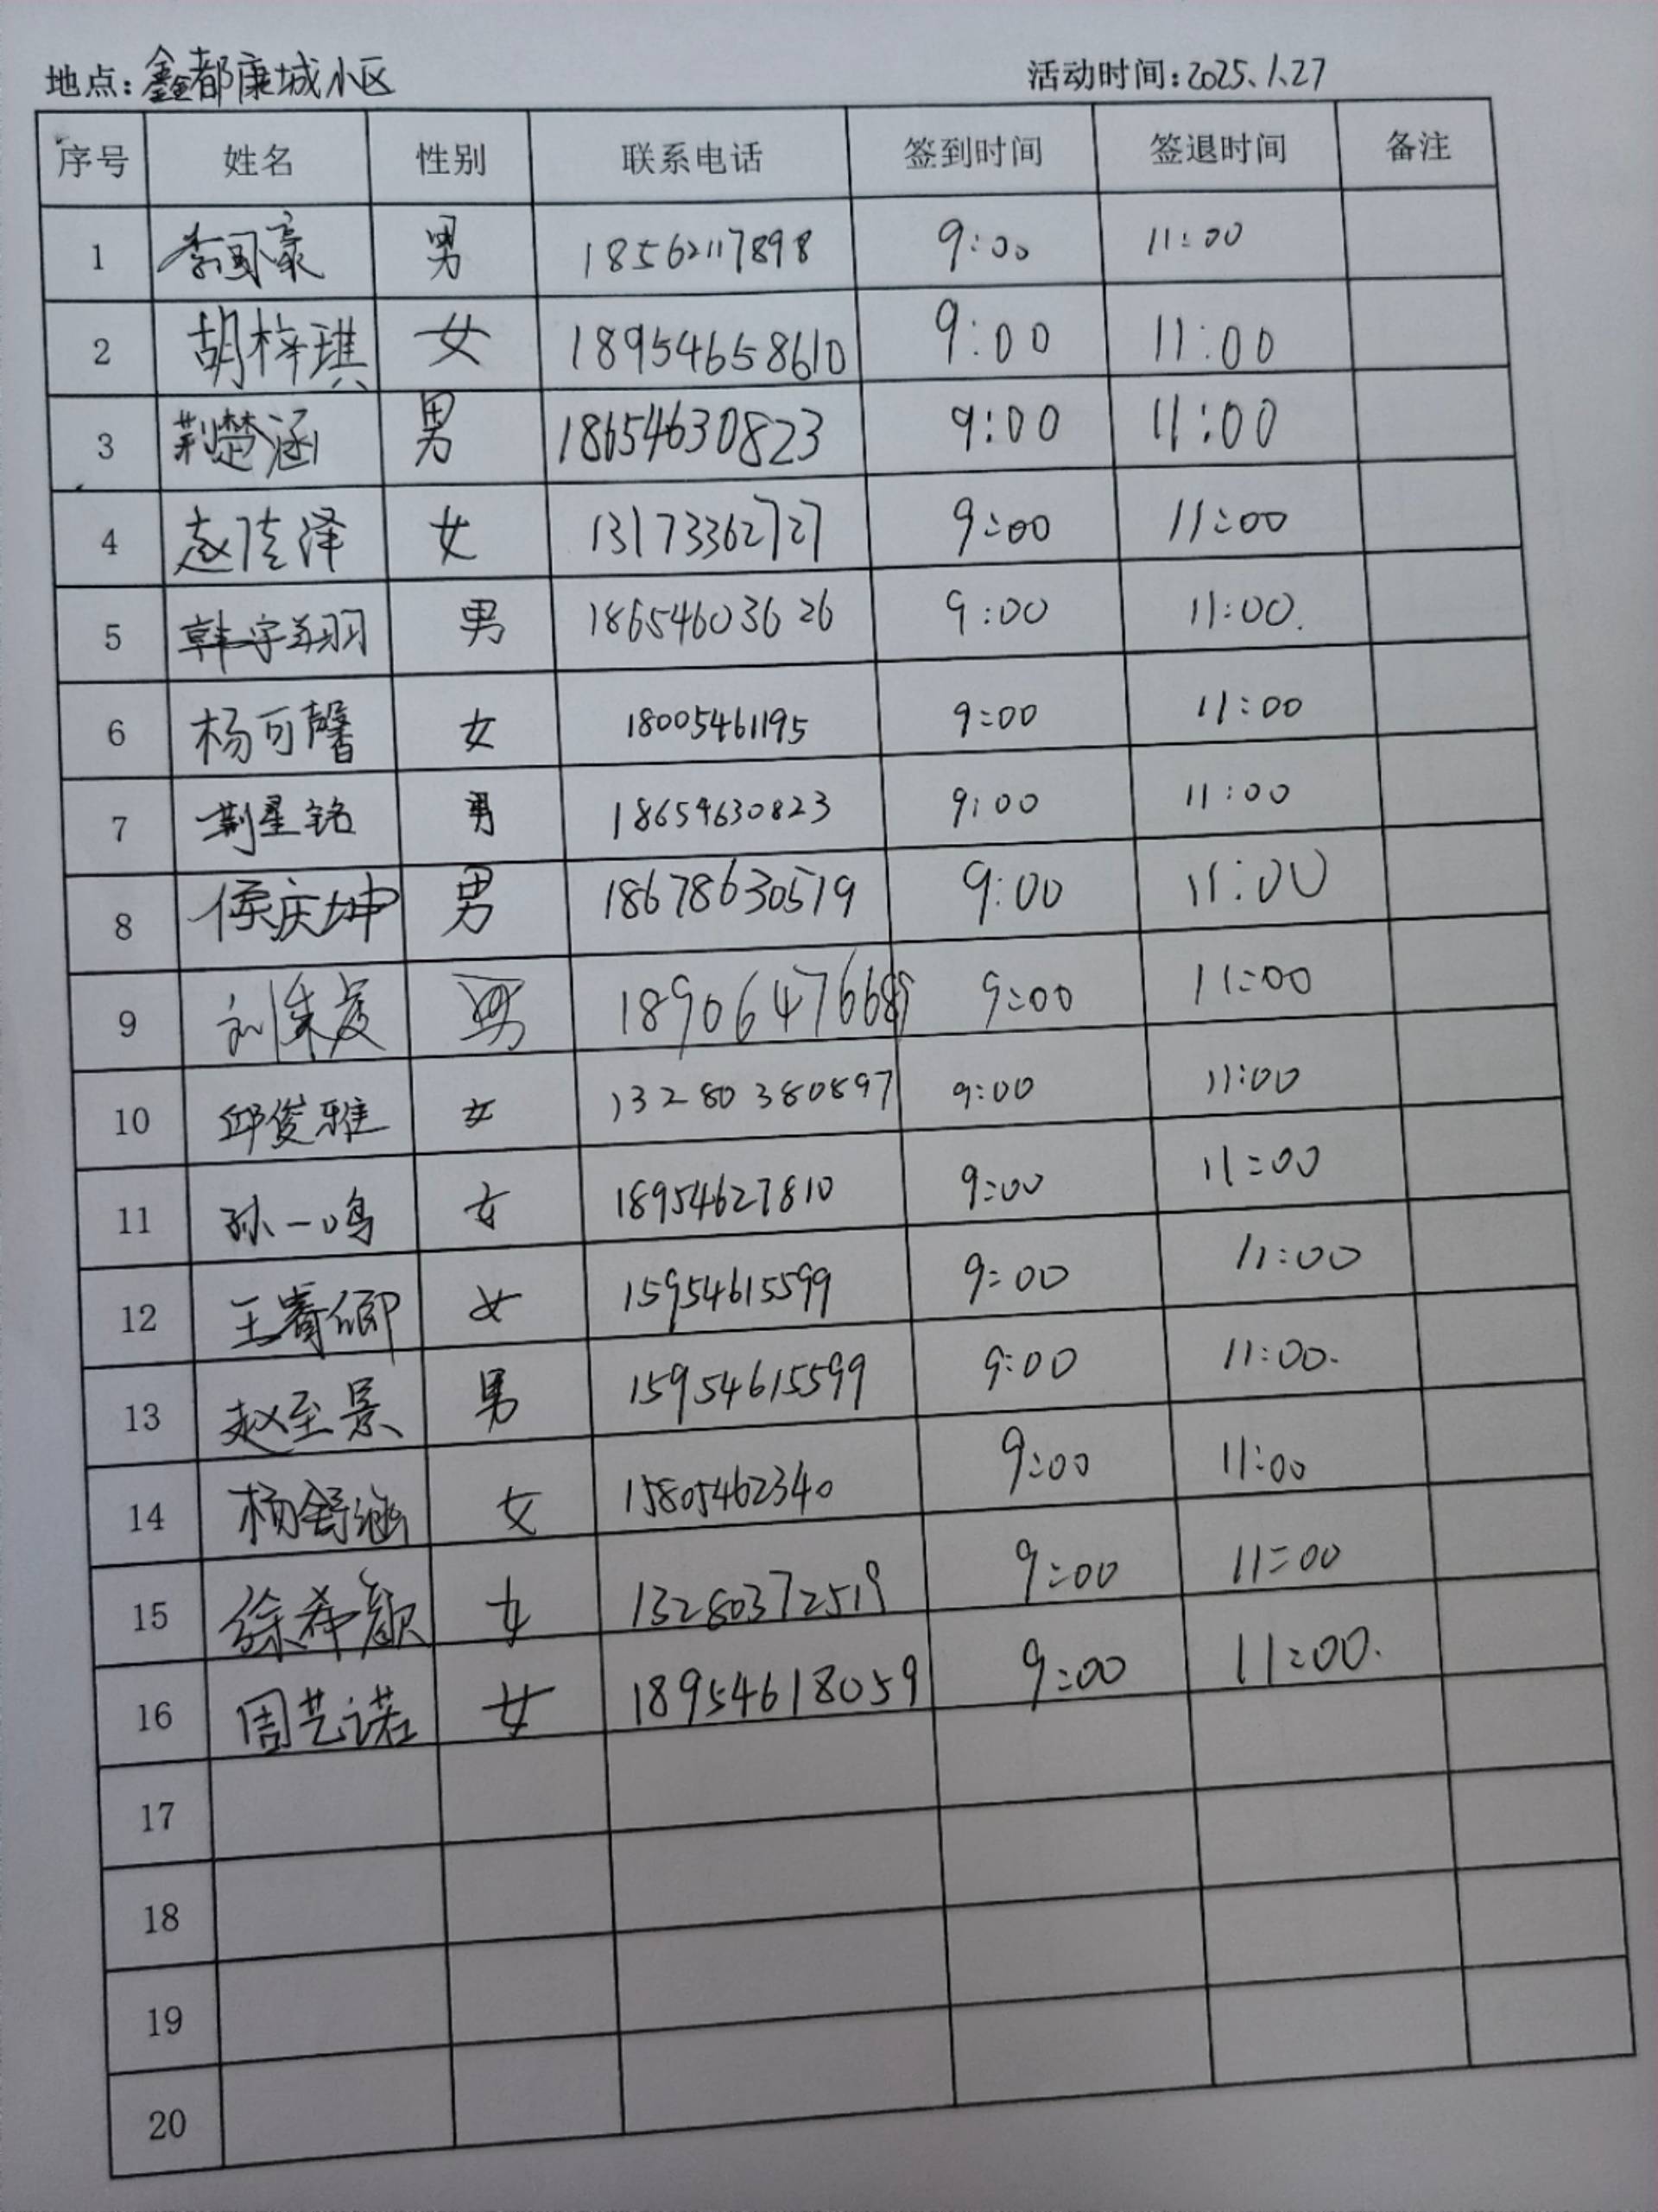 地点:鑫都康城小区 活动时间:2025.1.27
序号 姓名 性别 联系电话 签到时间 签退时间 备注
1 李国豪 男 18562117898 9:00 11:00
2 胡梓琪 女 18954658610 9:00 11:00
3 荆楚涵 男 18654630823 9:00 11:00
4 赵佳泽 女 13173362727 9:00 11:00
5 韩宇翔 男 18654603626 9:00 11:00.
6 杨可馨 女 18005461195 9:00 11:00
7 荆星铭 男 18654630823 9:00 11:00
8 侯庆坤 男 18678630519 9:00 11:00
9 男 18906476689 9:00 11:00
10 邱俊雅 女 13280380897 9:00 11:00
11 孙一鸣 女 18954627810 9:00 11:00
12 女 15954615599 9:00 11:00
13 赵至景 男 15954615599 9:00 11:00.
14 杨舒涵 女 15805462340 9:00 11:00
15 徐希颜 女 13280372519 9:00 11:00
16 周艺诺 女 18954618059 9:00 11:00.
17
18
19
20